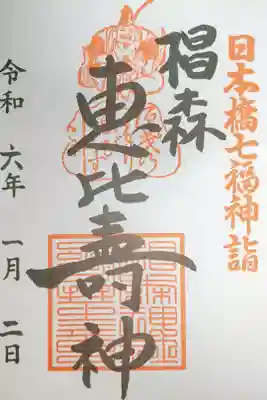 日本橋七福神詣
椙森
恵比壽神
令和六年一月二日